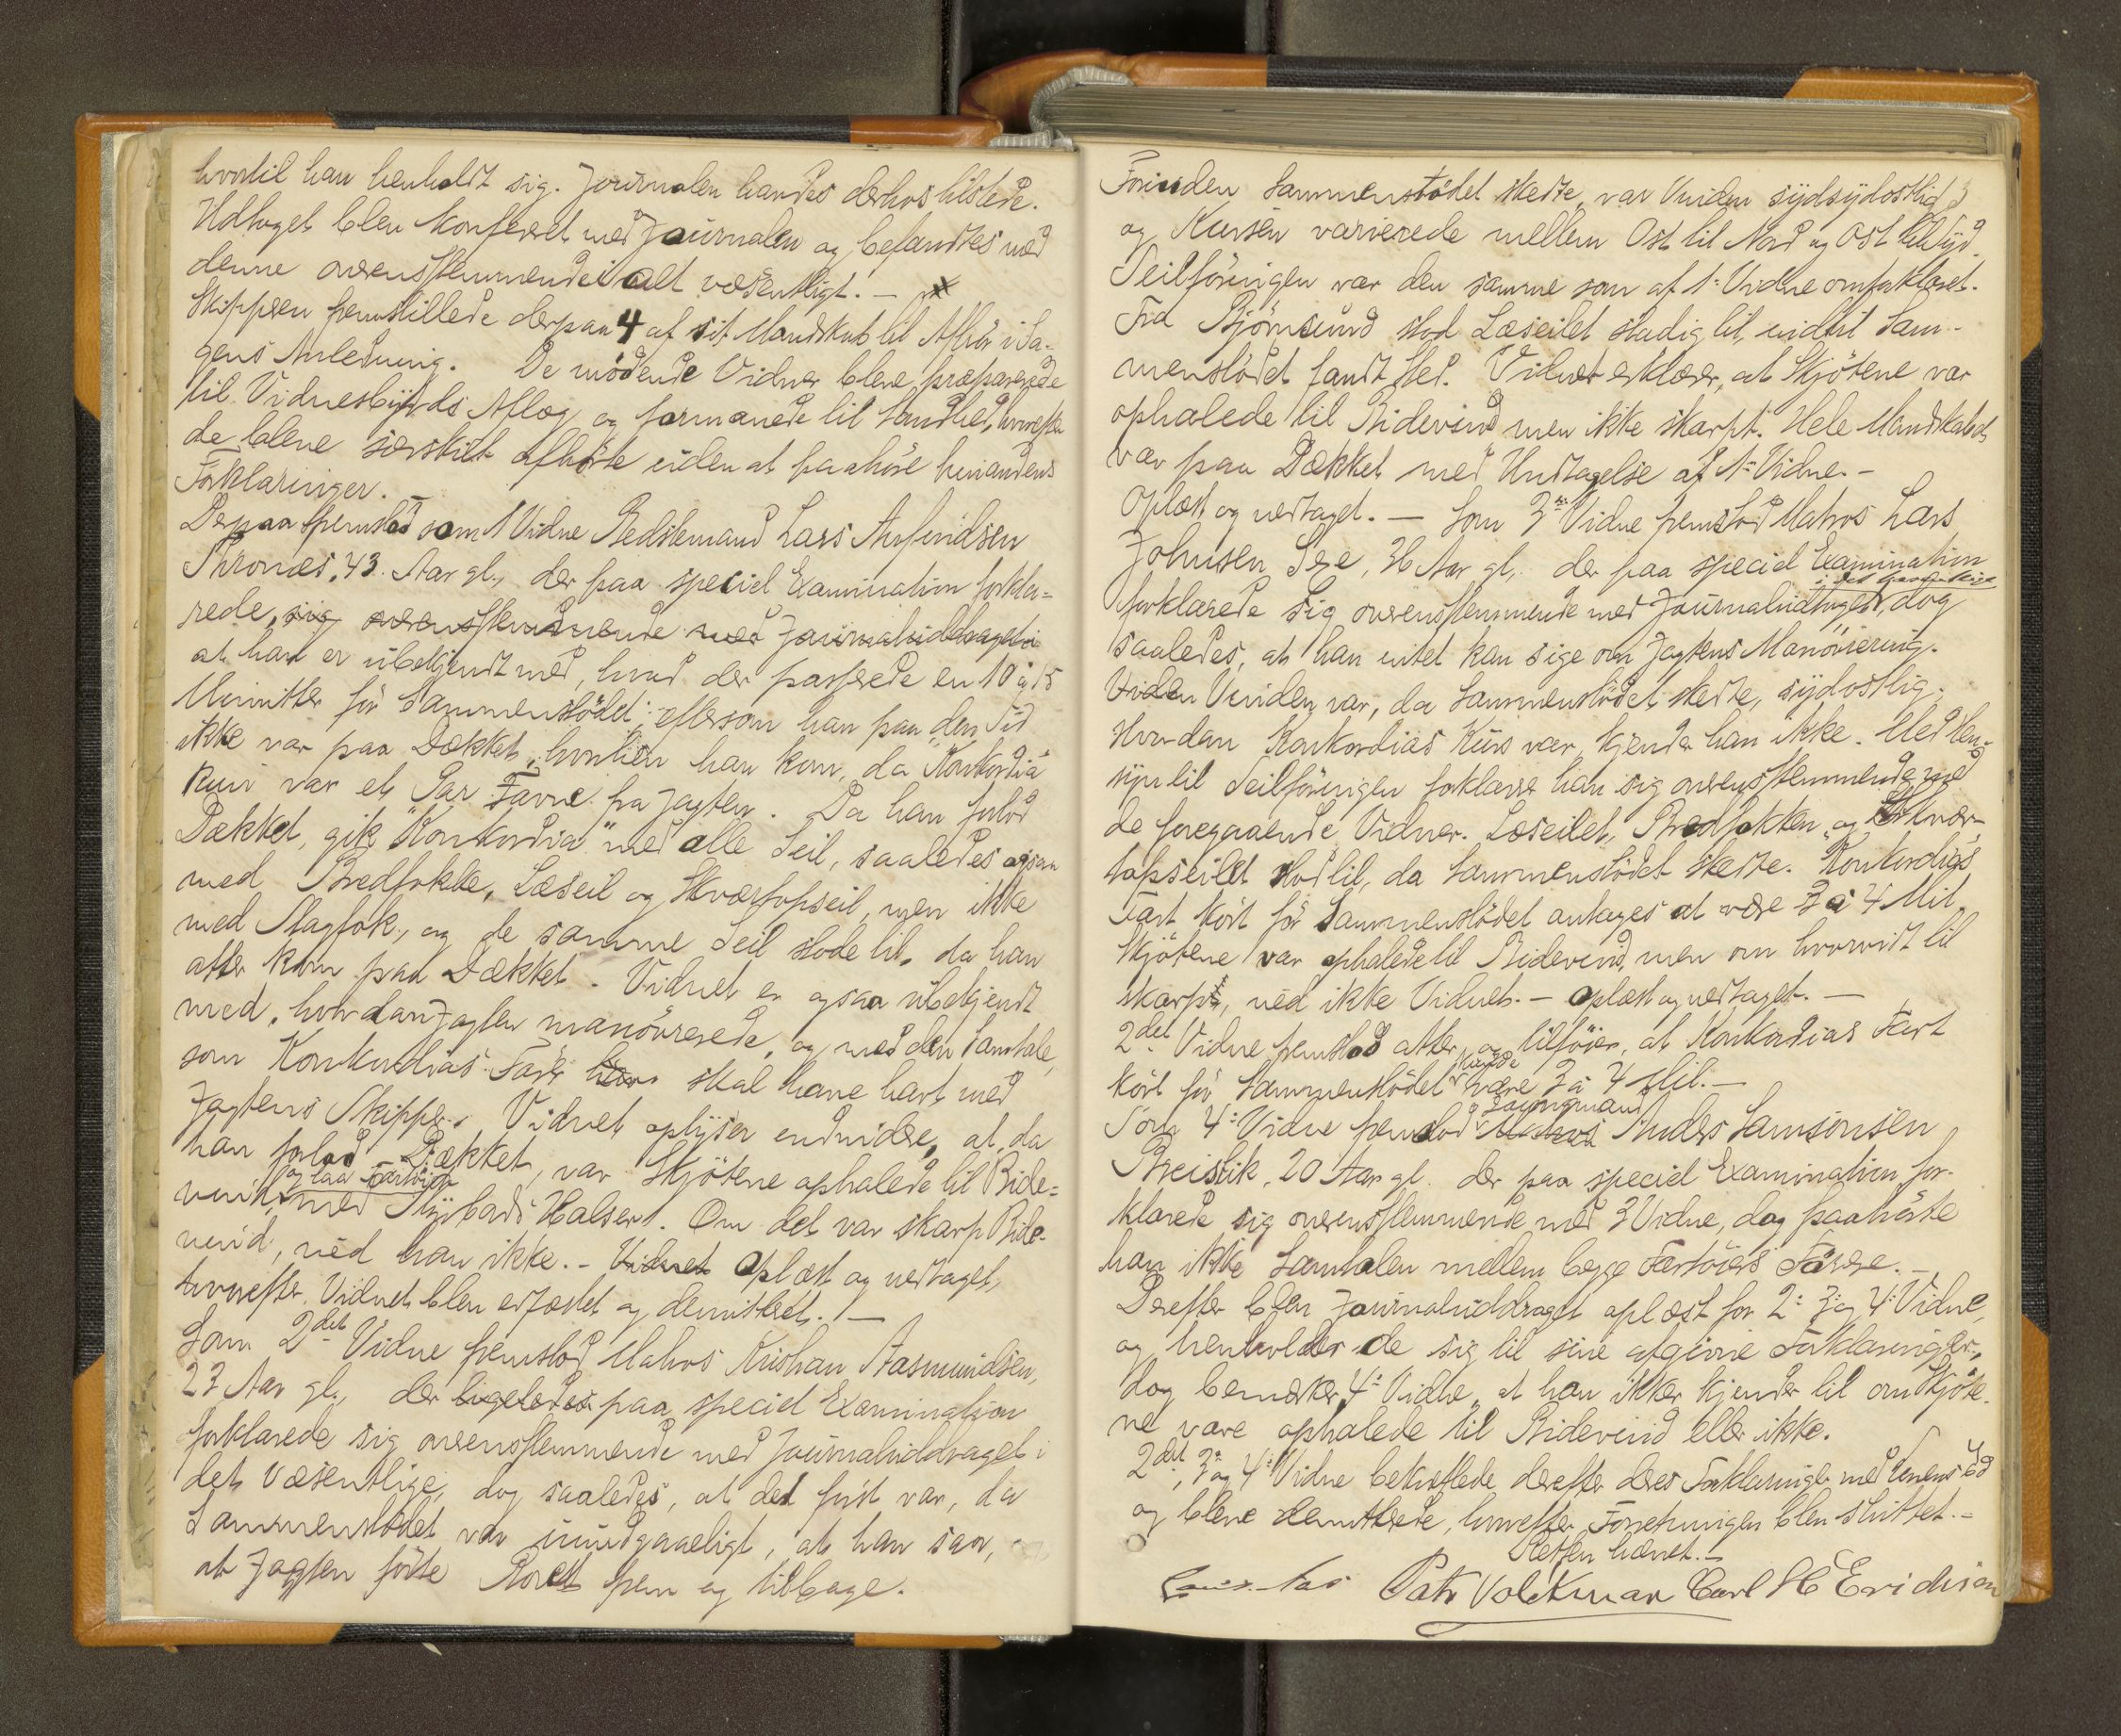 hvortil han henholdt sig. Journalen havdes derhos tilstede.
Udtoget blev konfereret med Journalen og befandtes med
denne overensstemmende i alt væsentligt. –
Skipperen fremstillede derpaa 4 af sit Mandskab til Afhör i Sa-
gens Anledning. De mödende Vidner bleve præparerede
til Vidnesbyrds Aflæg og formanede til Sandhed, hvorefter
de bleve særskilt afhörte uden at paahöre hinandens
Forklaringer. –
Derpaa fremstod som 1 Vidne Bedstemand Lars Arfindsen
43 Aar gl., der paa speciel Examination forkla-
rede sig overensstemmende med Journaluddraget i
at han er ubekjendt med, hvad der passerede en 10 à 15
Minutter för Sammenstödet, eftersom han paa den Tid
ikke var paa Dækket, hvorhen han kom, da "Konkordia"
kun var et Par Favne fra Jagten. Da han forlod
Dækket, gik "Konkordia" med alle Seil, saaledes ogsaa
med Bredfokke, Læseil og Skværtopseil, men ikke
med Stagfok, og de samme Seil stode til, da han
atter kom paa Dækket. Vidnet er ogsaa ubekjendt
med, hvordan Jagten manövrerede, og med den Samtale,
som Konkordias Förer har skal have havt med
Jagtens Skipper. Vidnet oplyser endvidere, at da
han forlod Dækket, var Skjötene ophalede til Bide-
og laa Fartöiet
vind, med Styrbords Halser. Om det var skarp Bide-
vind, ved han ikke. – Vidnet Oplæst og vedtaget,
hvorefter Vidnet blev erfæstet og demitteret. –
Som 2det Vidne fremstod Matros Kristian Aasmundsen,
27 Aar gl., der ligeledes paa speciel Examination
forklarede sig overensstemmende med Journaluddraget i
det Væsentlige, dog saaledes, at det först var, da
Sammenstödet var uundgaaeligt, at han saa,
at Jagten förte Roret frem og tilbage.
Forinden Sammenstödet skede, var Vinden sydsydostlig
og Kursen varierede mellem Ost til Nord og Ost til Syd.
Seilföringen var den samme som af 1: Vidne omforklaret.
Fra Björnsund stod Læseilet stadig til, indtil Sam-
menstödet fandt Sted. Vidnet erklærer, at Skjötene var
ophalede til Bidevind men ikke skarpt. Hele Mandskabet
var paa Dækket med Undtagelse af 1: Vidne. –
Oplæst og vedtaget. – Som 3die Vidne fremstod Matros Lars
Johnsen 36 Aar gl., der paa speciel Examination
i det
forklarede sig overensstemmende med Journaludtoget, dog
saaledes, at han intet kan sige om Jagtens Manövrering.
Viden Vinden var, da Sammenstödet skede, sydostlig.
Hvordan Konkordias Kurs var, kjender han ikke. Med Hen-
syn til Seilföringen forklarer han sig overensstemmende med
de foregaaende Vidner. Læseilet, Bredfokken og Skvær-
topseilet stod til, da Sammenstödet skede. Konkordias
Fart kort för Sammenstödet antages at være 3 à 4 Mil.
Skjötene var ophalede til Bidevind, men om hvorvidt til
skarpt, ved ikke Vidnet. – Oplæst og vedtaget. –
2det Vidne fremstod atter og tilföier, at Konkordias Fart
kunde
kort för Sammenstödet være 3 à 4 Mil. –
Jungmand
Som 4: Vidne fremstod Matros Anders Samsonsen
Breistik, 20 Aar gl. der paa speciel Examination for-
klarede sig overensstemmende med 3 Vidne, dog paahörte
han ikke Samtalen mellem begge Fartöiers Förere. –
Derefter blev Journaluddraget oplæst for 2: 3: og 4: Vidne,
og henholder de sig til sine afgivne Forklaringer,
dog bemærker 4: Vidne, at han ikke kjender til om Skjöte-
ne vare ophalede til Bidevind eller ikke.
2det, 3: og 4: Vidne bekræftede derefter deres Forklaringer med Lovens Ed
og bleve demitterede, hvorefter Forretningen blev sluttet. –
Retten hævet. –
Volckmar Carl H Eriksen